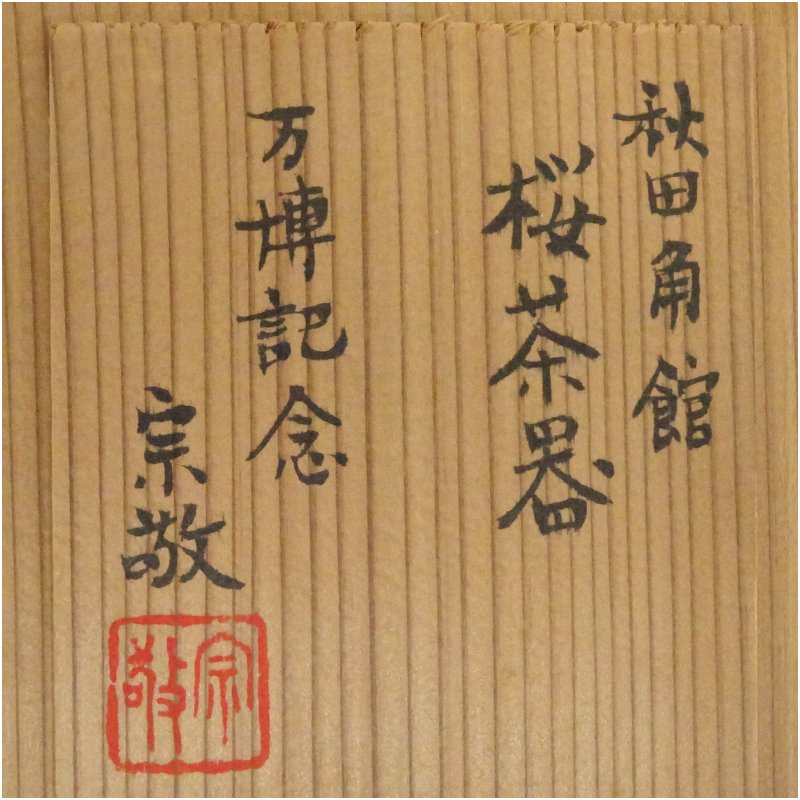 秋田角館
桜茶器
万博記念
宗敬
宗敬